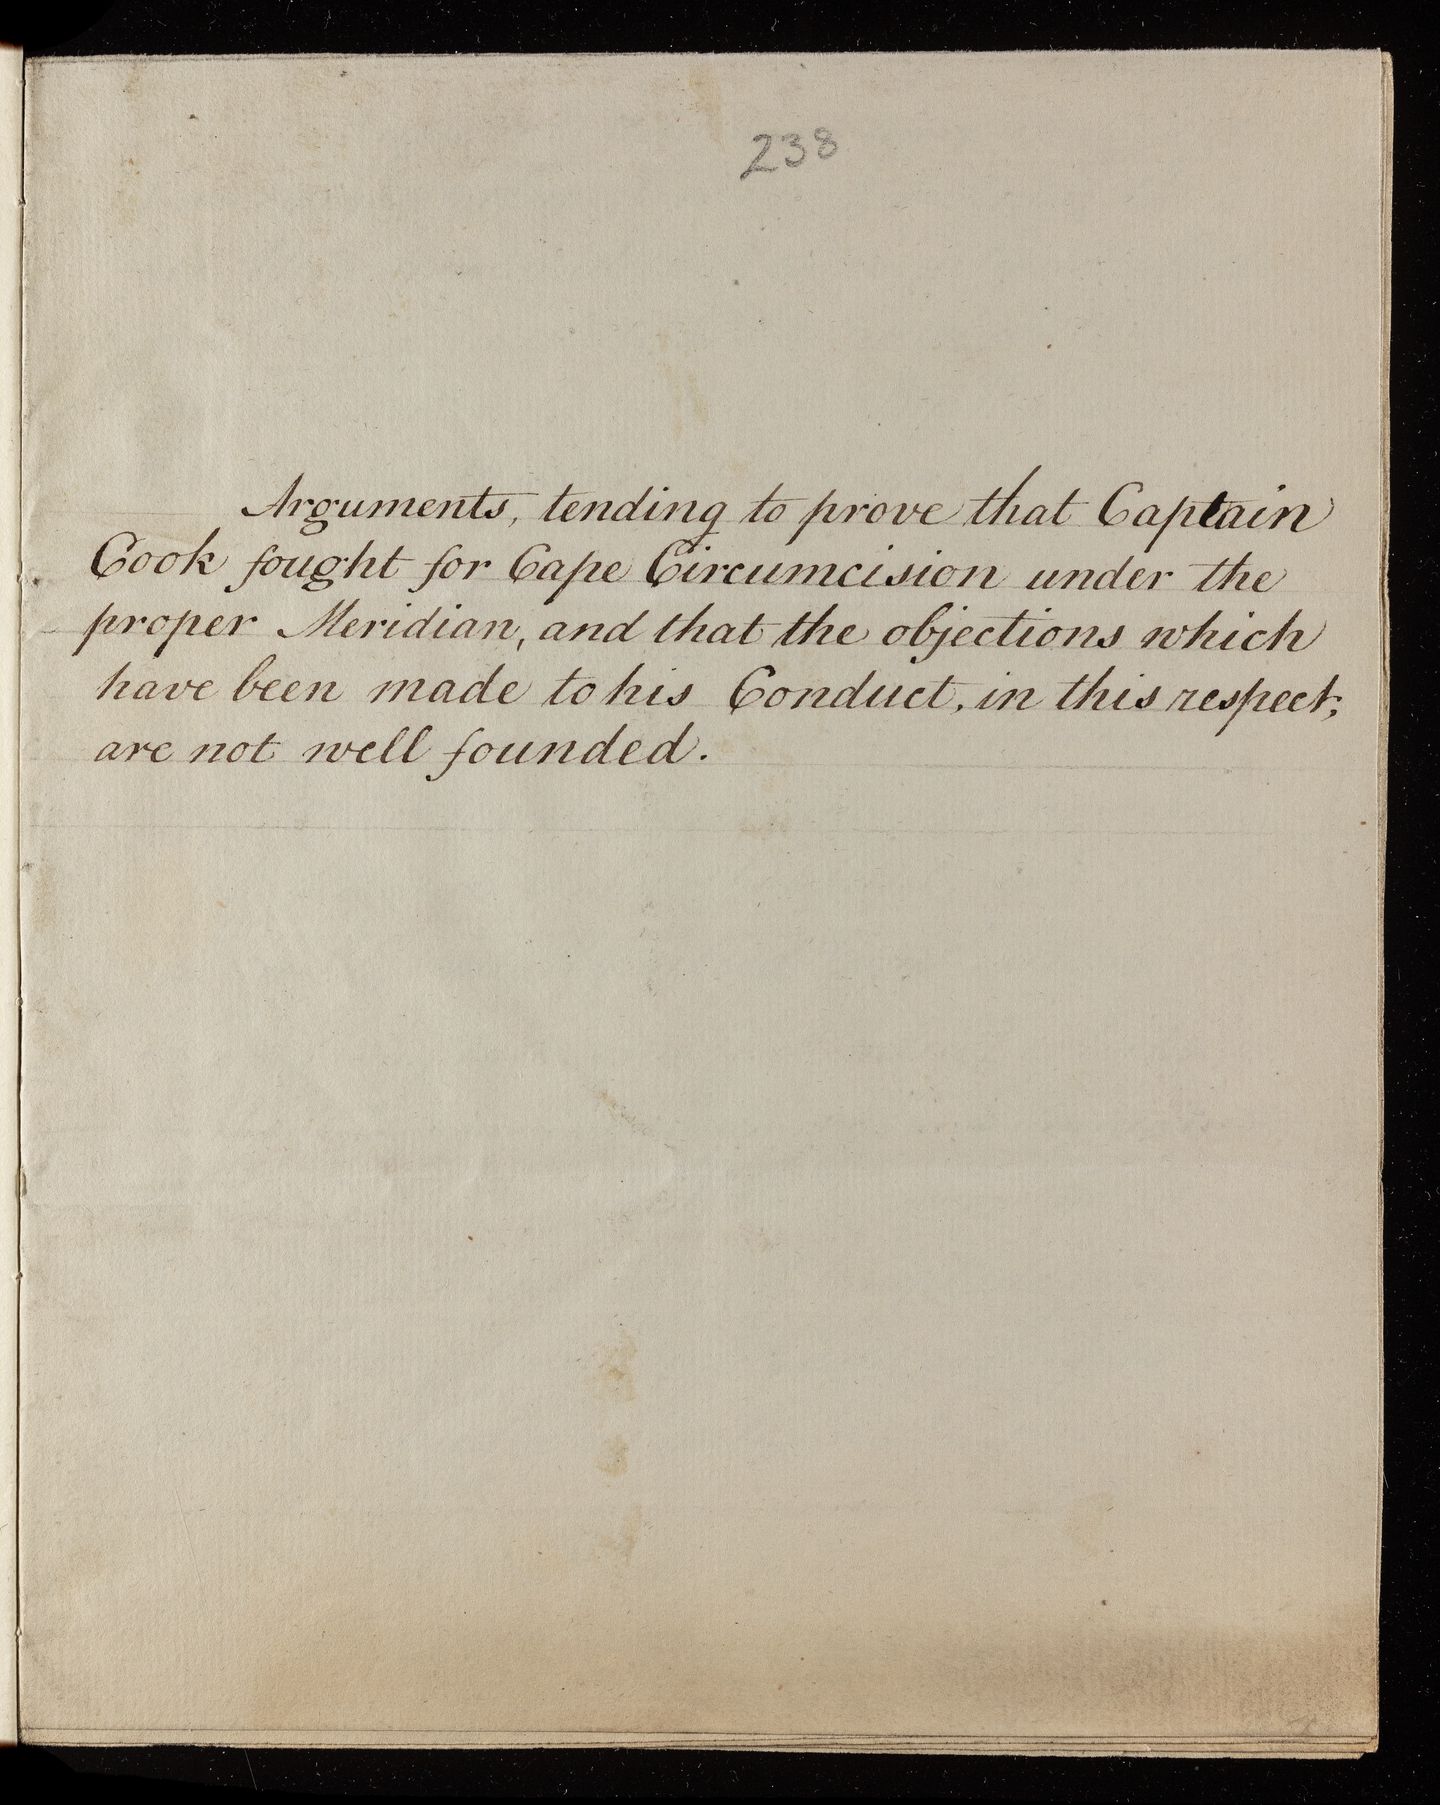 238
Arguments, tending to prove that Captain
Cook sought for Cape Circumcision under the
proper Meridian, and that the objections which
have been made to his Conduct, in this respect,
are not well founded.